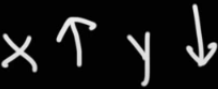 x ↑ y ↓